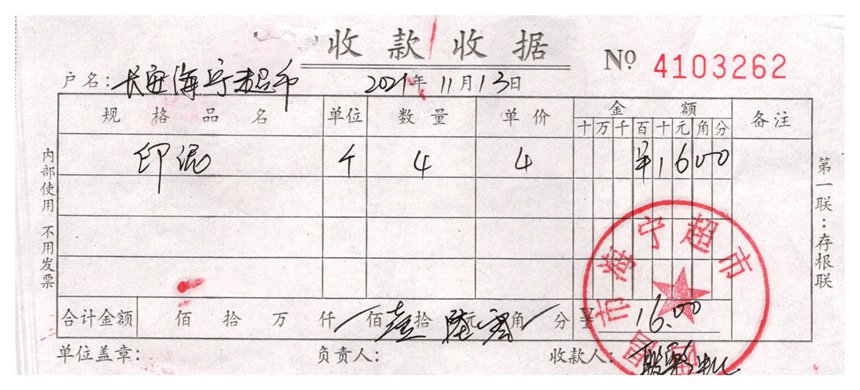 收款收据
No 4103262
户名：长安海宁超市 2021年11月13日
规格品名 单位 数量 单价 金额 备注
十万千百十元角分
印泥 个 4 4 ¥1600
内部使用 不用发票
第一联：存根联
海宁超市
合计金额 佰 拾 万 仟 佰 壹拾 陆元 角 分 ¥16.00
单位盖章： 负责人： 收款人：